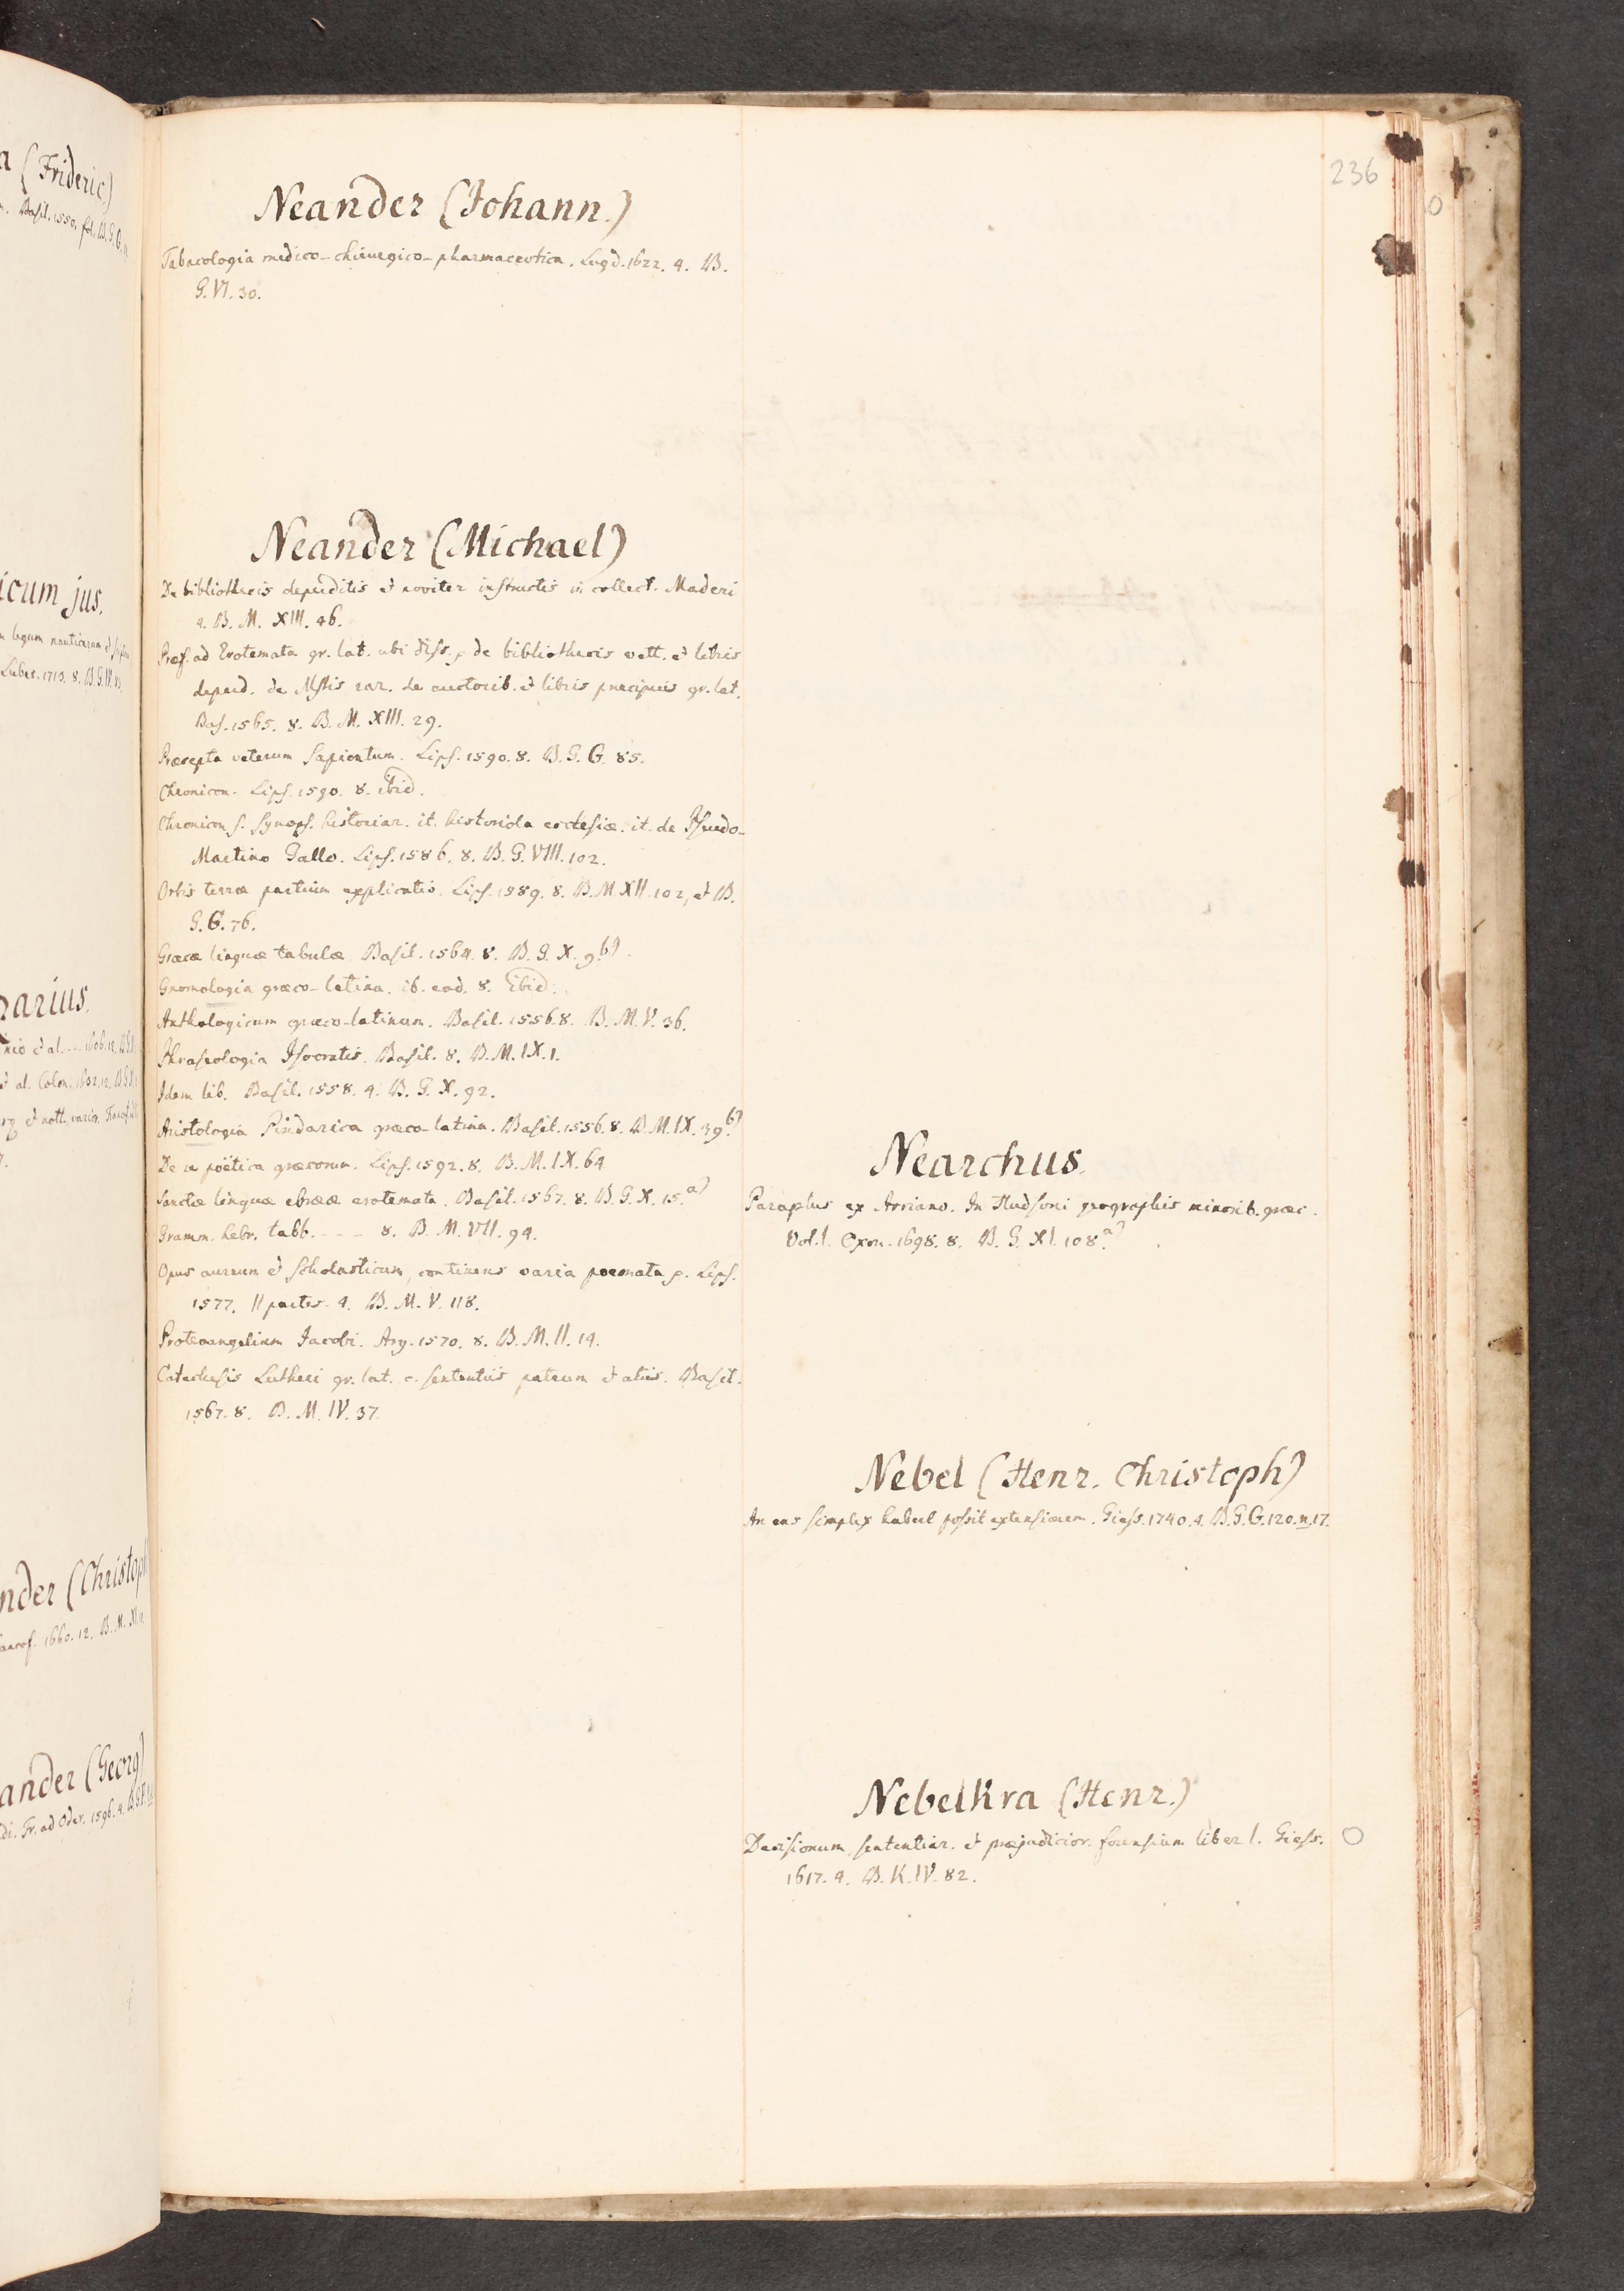 236
Neander (Johann.)
Tabacologia medico-chirurgico-pharmaceutica. Lugd. 1622. 4. B.
G. VI. 30.
Neander (Michael)
De bibliothecis deperditis et noviter instructis in collect. Maderi
4. B. M. XIII. 46.
Præf. ad Erotemata gr. lat. ubi diss. de bibliothecis vett. et libris
deperd. de Mstis rar. de auctorib. et libris præcipuis gr. lat.
Bas. 1565. 8. B. M. XIII. 29.
Præcepta veterum sapientum. Lips. 1590. 8. B. G. G. 85.
Chronicon. Lips. 1590. 8. ibid.
Chronicon s. synops. historiar. it. historiola ecclesiæ. it. de Psuedo-
Martino Gallo. Lips. 1586. 8. B. G. VIII. 102.
Orbis terræ partium explicatio. Lips. 1589. 8. B. M. XII. 102, et B.
G. G. 76.
Græcæ linguæ tabulæ. Basil. 1564. 8. B. G. X. 9.b)
Gnomologia græco-latina. ib. ead. 8. ibid.
Anthologicum græco-latinum. Basil. 1556. 8. B. M. V. 36.
Phraseologia Isocratis. Basil. 8. B. M. IX. 1.
Idem lib. Basil. 1558. 4. B. G. X. 92.
Aristologia Pindarica græco latina. Basil. 1556. 8. B. M. IX. 39.b)
De re poëtica græcorum. Lips. 1592. 8. B. M. IX. 64
Sanctæ linguæ ebrææ erotemata. Basil. 1567. 8. B. G. X. 15.a)
Gramm. hebr. tabb. - - - 8. B. M. VII. 94.
Opus aureum et scholasticum, continens varia poemata p. Lips.
1577. II partes. 4. B. M. V. 118.
Protevangelium Jacobi. Arg. 1570. 8. B. M. II. 14.
Catechesis Lutheri gr. lat. c. sententiis patrum et aliis. Basil.
1567. 8. B. M. IV. 37.
Nearchus.
Paraplus ex Arriano. In Hudsoni geographis minorib. græc.
Vol. I. Oxon. 1698. 8. B. G. XI. 108.a)
Nebel (Henr. Christoph)
An ens simplex habere possit extensionem. Giess. 1740. 4. B. G. G. 120. n. 17.
Nebelkra (Henr.)
Decisionum, sententiar. et præjudicior. forensium liber I. Giess.
1617. 4. B. K. IV. 82.